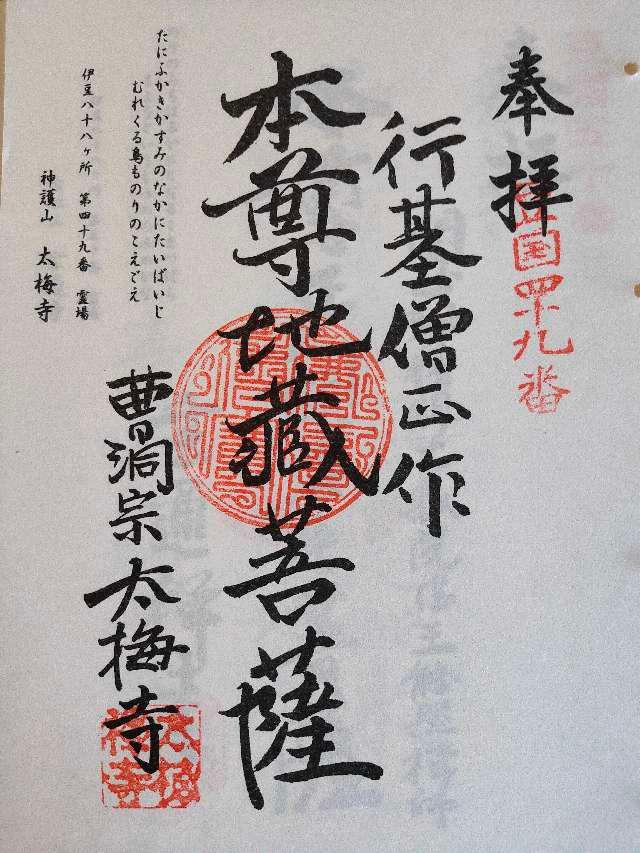 奉拝
豆国四十九番
行基僧正作
本尊地蔵菩薩
曹洞宗太梅寺
たにふかきかすみのなかにたいばいじ
むれくる鳥ものりのこえごえ
伊豆八十八ヶ所 第四十九番 霊場
神護山 太梅寺
太梅寺